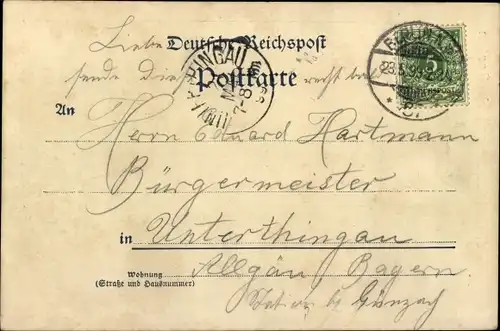 Liebe Deutsche Reichspost
sende Postkarte recht
An
Herrn Eduard Hartmann
Bürgermeister
in Unterthingau
Wohnung
(Straße und Hausnummer)
Allgäu Bayern.
Station b/ Günzach
5